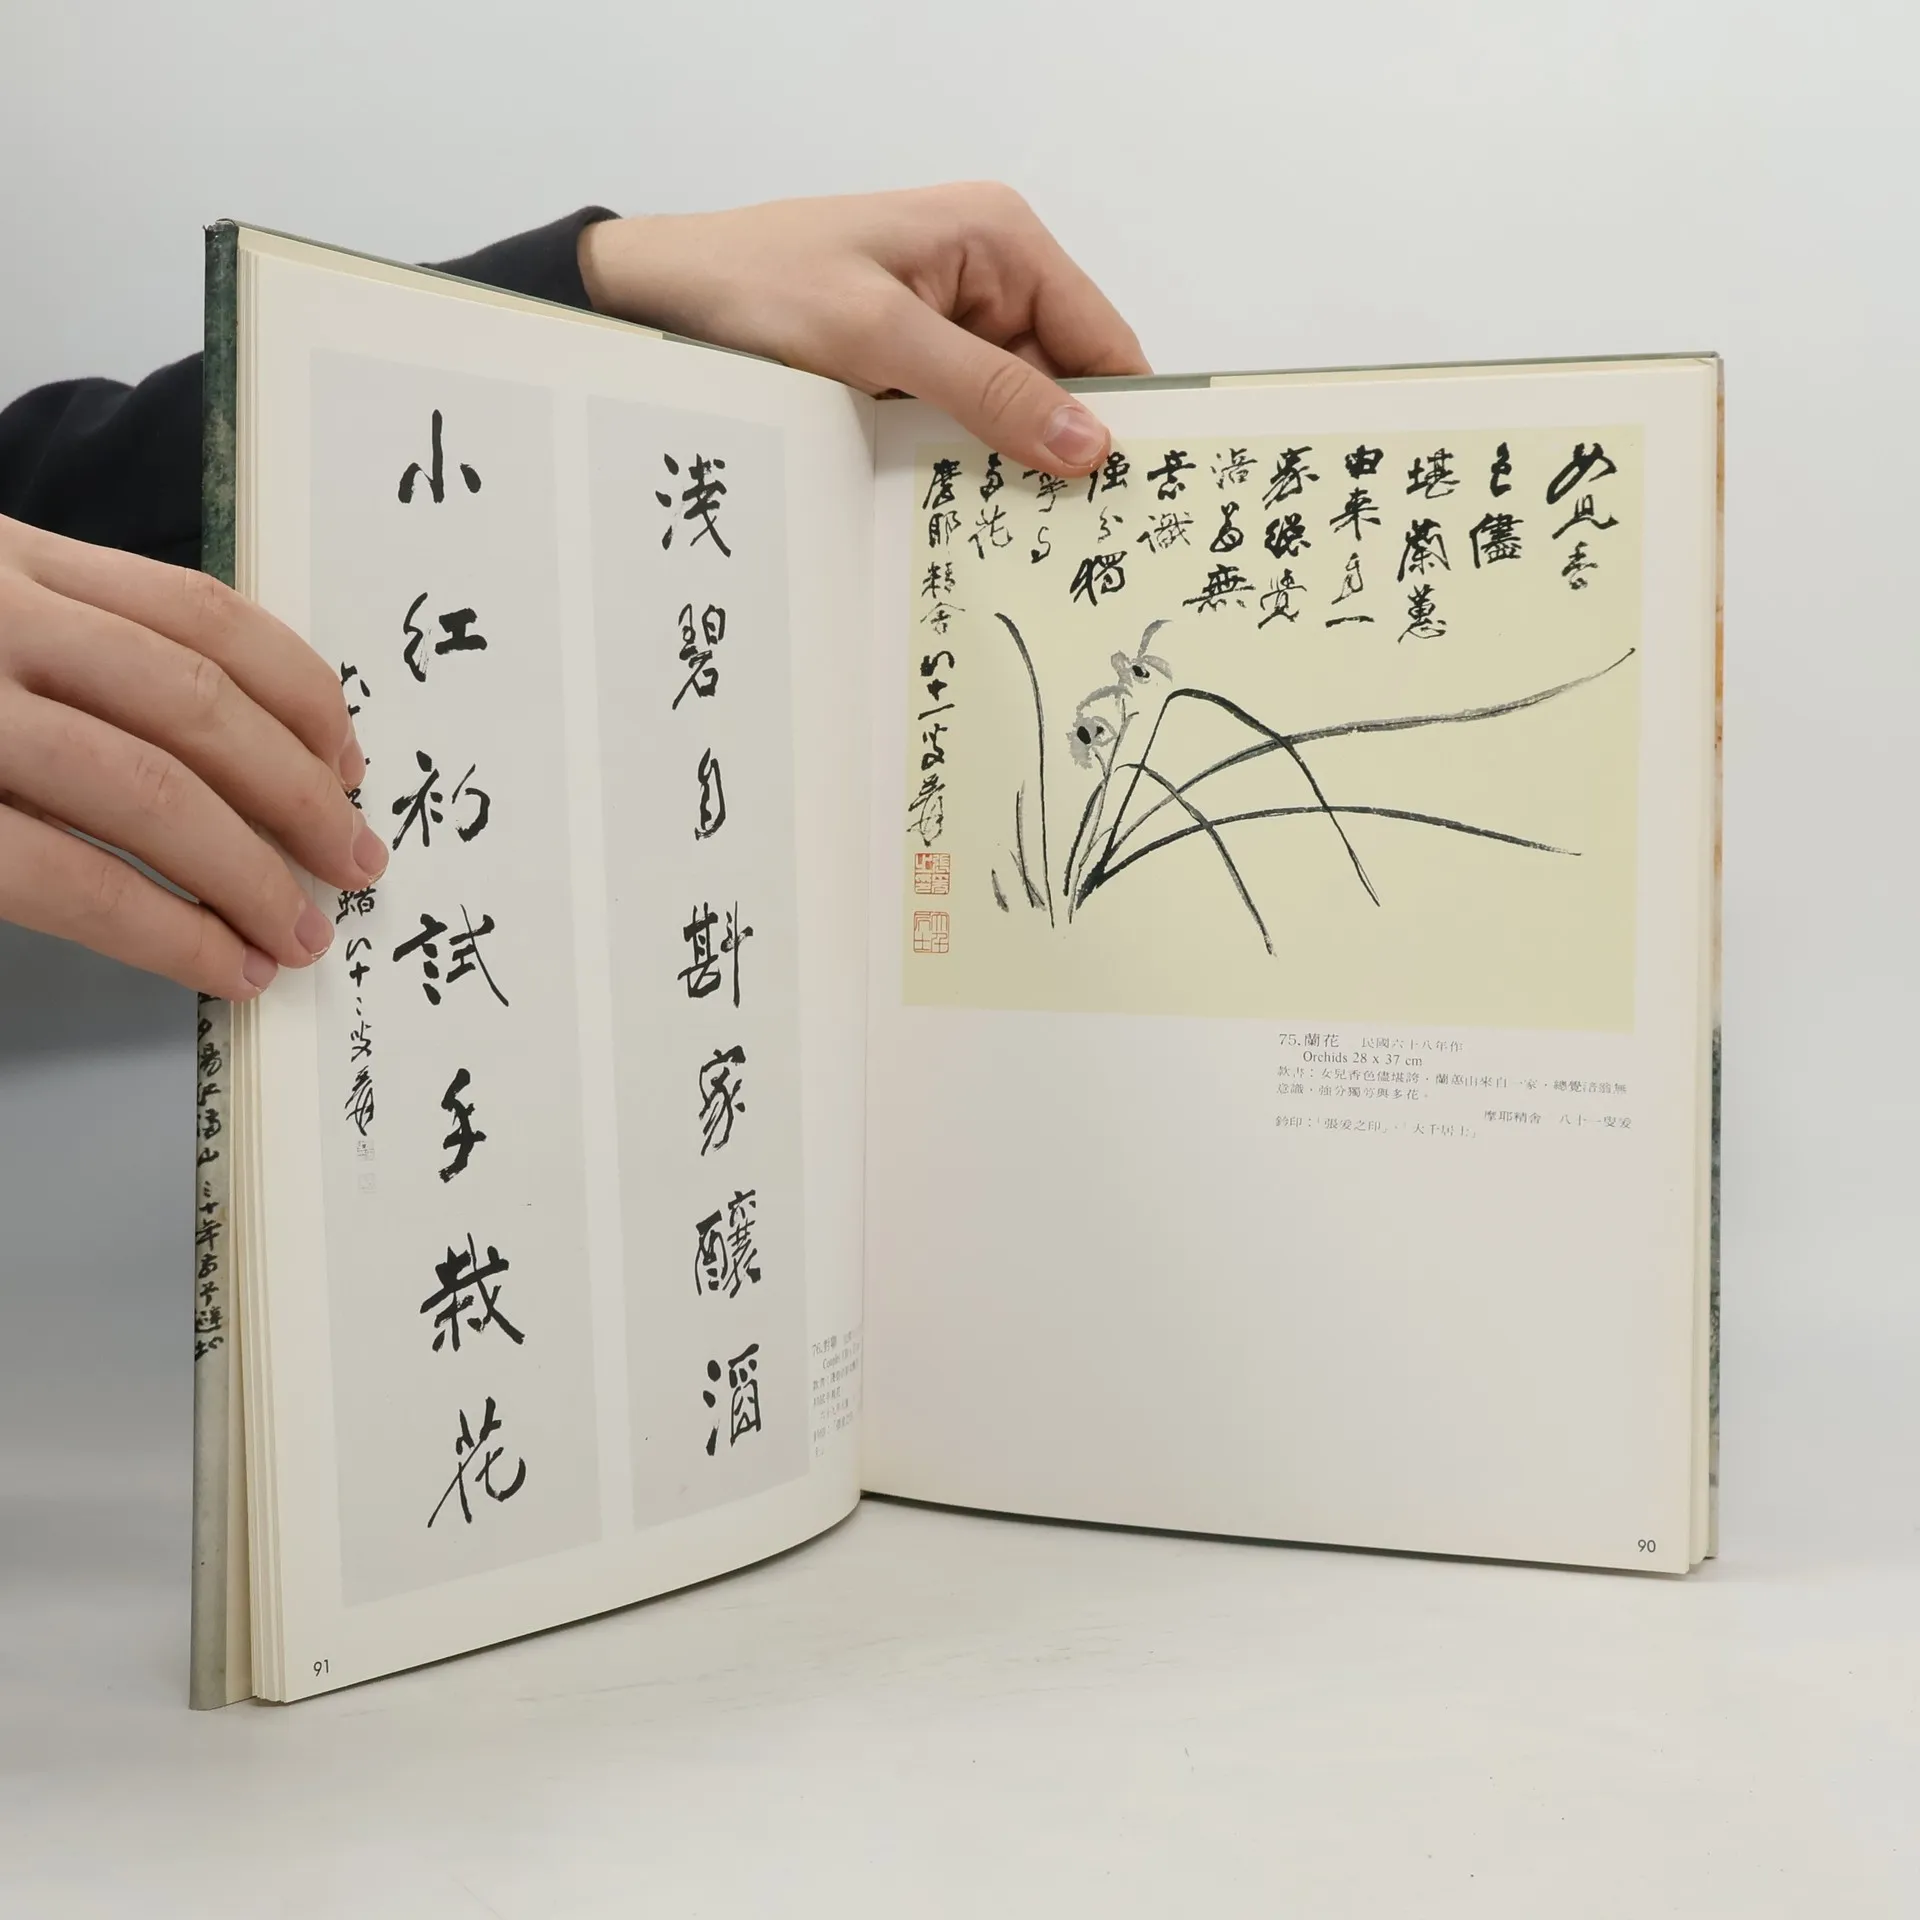 女兒香
色儘
堪
蘭蕙
由来自一
家總覺
涪翁無
意識
強分獨
与
多花
摩耶精舍 八十一叟爰
75.蘭花 民國六十八年作
Orchids 28 x 37 cm
款書：女兒香色儘堪誇，蘭蕙由來自一家，總覺涪翁無
意識，強分獨芳與多花。
摩耶精舍 八十一叟爰
鈐印：「張爰之印」、「大千居士」
90
浅碧自斟家釀酒
小红初試手栽花
八十二叟爰
76.對聯
91